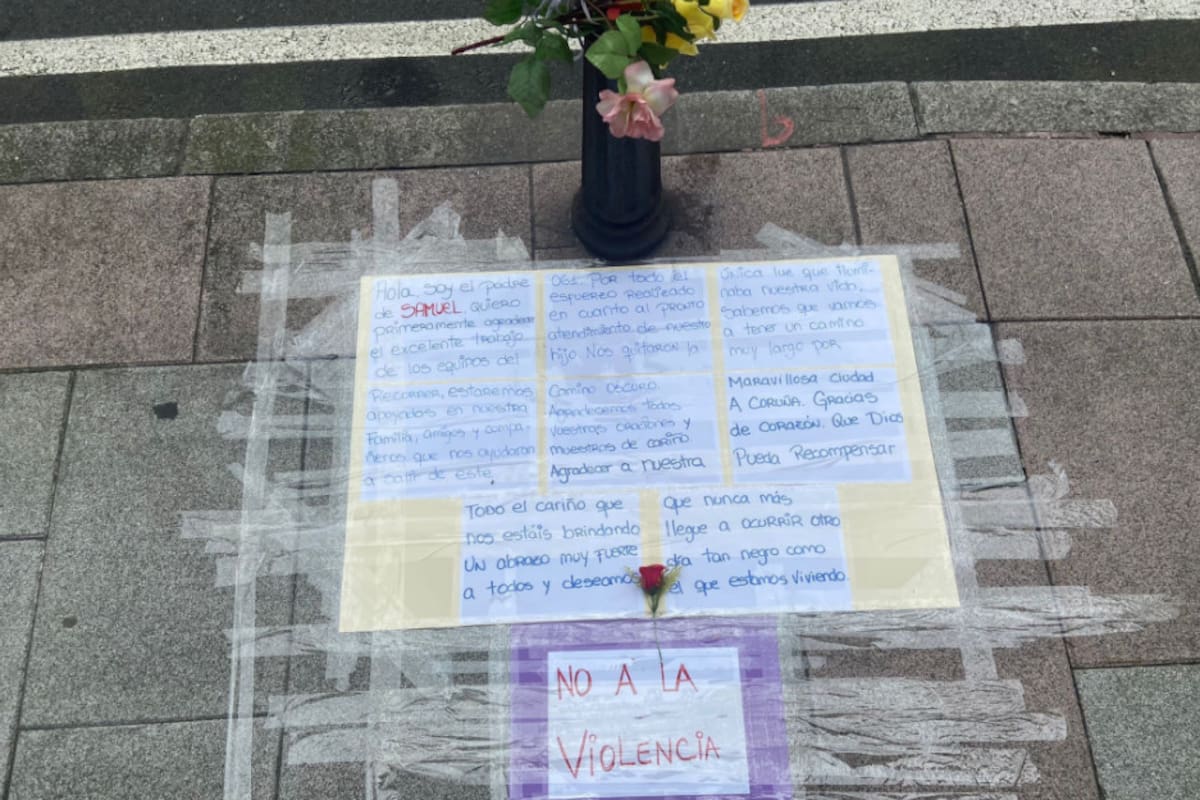 Hola, soy el padre
de SAMUEL, quiero
primeramente agradecer
el excelente trabajo
de los equipos del
061. Por todo el
esfuerzo realizado
en cuanto al pronto
atendimiento de nuestro
hijo. Nos quitaron la
única luz que ilumi-
naba nuestra vida,
Sabemos que vamos
a tener un camino
muy largo por
Recorrer, estaremos
apoyados en nuestra
Familia, amigos y compa-
ñeros que nos ayudaran
a salir de este
Camino oscuro.
Agradecemos todas
vuestras oraciones y
muestras de cariño
Agradecer a nuestra
Maravillosa ciudad
A Coruña. Gracias
de corazón. Que Dios
Pueda Recompensar
TODO el cariño que
nos estáis brindando
UN abrazo muy fuerte
a todos y deseamos
que nunca más
llegue a ocurrir otro
día tan negro como
el que estamos viviendo.
NO A LA
VIOLENCIA